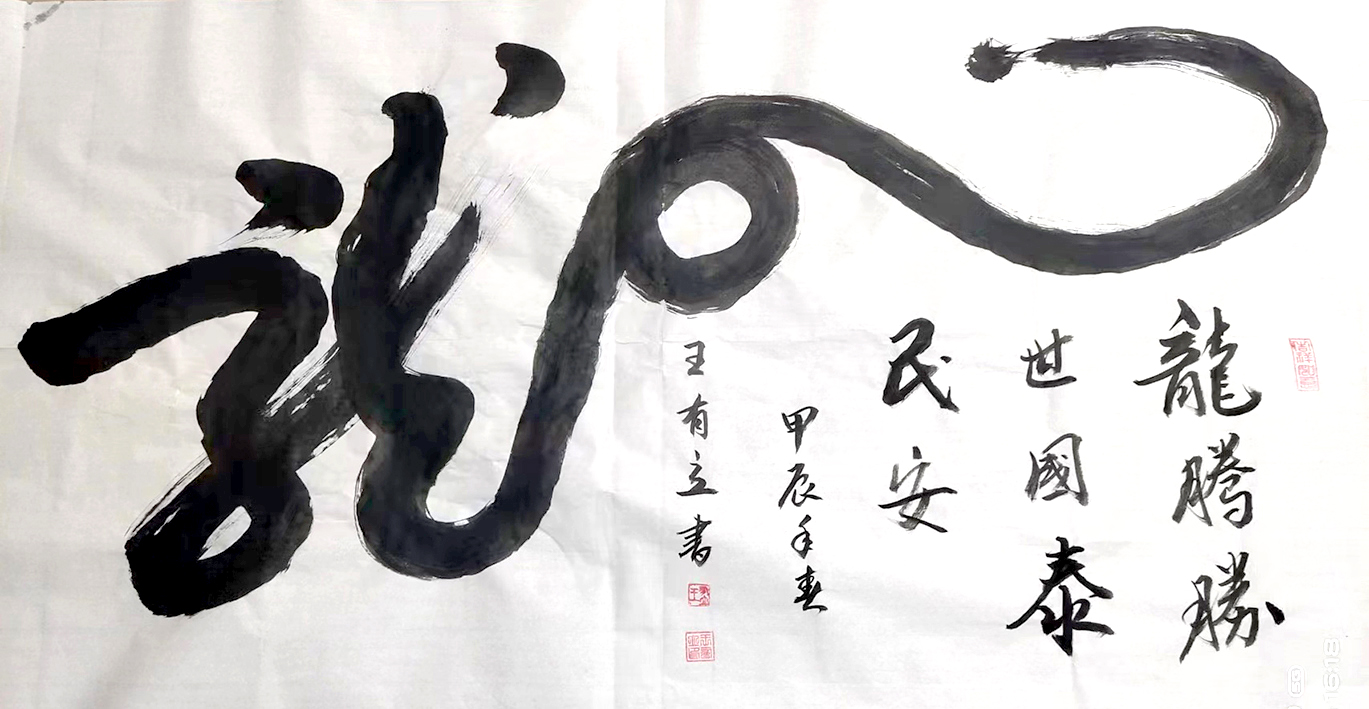 龍
龍騰勝
世國泰
民安
甲辰年春
王有立書